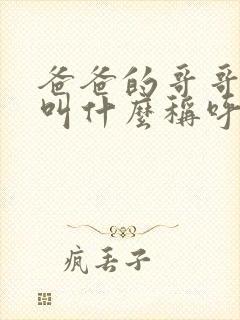 爸爸的哥哥
叫什麼稱呼
瘋丟子